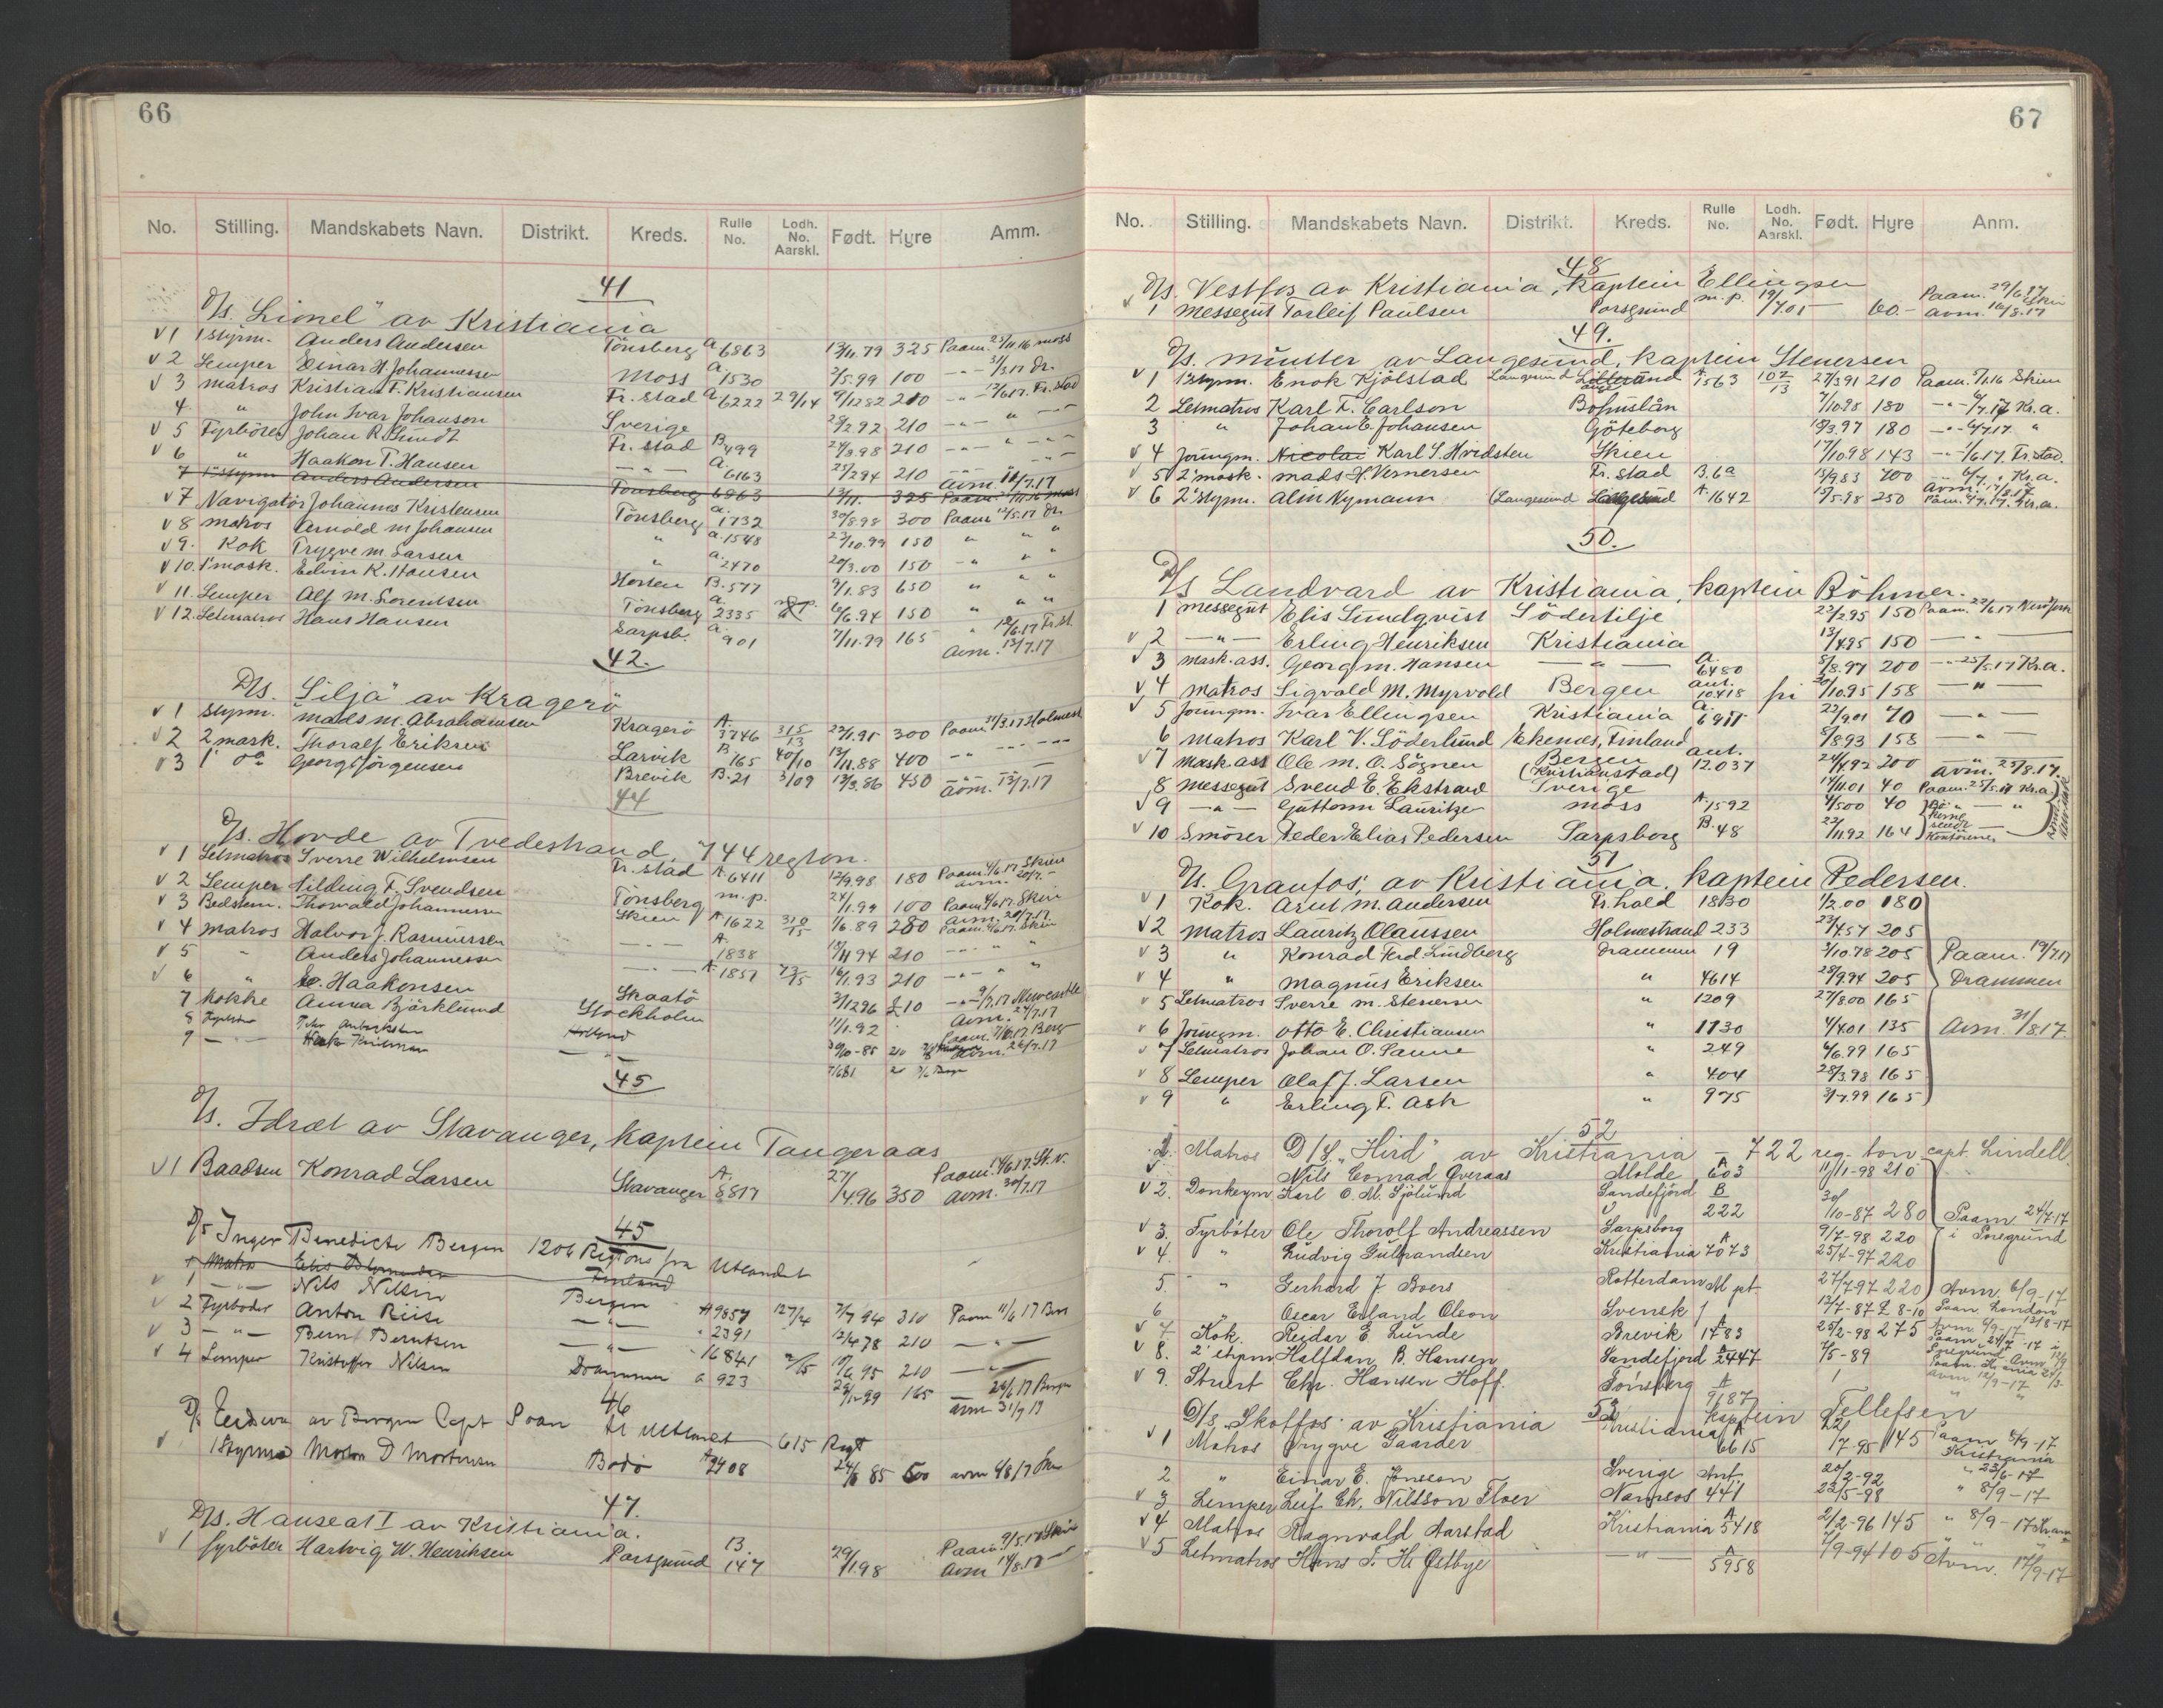 66
No. Stilling. Mandskabets Navn. Distrikt. Kreds. Rulle No. Lodh. No. Aarskl. Født. Hyre Amm.
41
D/s. "Lionel" av Kristiania
v 1 1 styrm. Anders Andersen Tönsberg A 6863 13/11.79 325 Paam. 23/11.16 Moss
v 2 Lemper Einar H. Johannessen Moss A. 1530 2/5.99 100 -"- 31/3.17 Dr.
v 3 Matros Kristian F. Kristiansen Fr. stad A 6222 29/14 9/12 82 210 -"- 12/6.17. Fr. stad
4 " John Ivar Johanson Sverige 28/2 92 210 -"- " -"-
v 5 Fyrböter Johan R. Sundt Fr. stad B 499 24/3.98 210 -"- " -"-
v 6 " Haakon T. Hansen -"- A. 6163 25/2 94 210 -"- -"- Avm. 18/7.17
7 1' Styrm Anders Andersen Tönsberg 6863 13/11. 325 Paam. 23/11.16 Moss
v 7 Navigatör Johannes Kristensen Tönsberg A. 1732 30/8.98 300 Paam 12/5.17 Dr.
v 8 Matros Arnold M Johansen " A. 1548 23/10.99 150 " " "
v 9. Kok Trygve M. Larsen " A. 2470 20/3.00 150 -" " "
v 10. 1' Mask. Edvin K. Hansen Horten B. 577 9/1.83 650 " " "
v 11. Lemper Alf M. Sorentsen Tönsberg A. 2335 6/6.94 150 " " "
v 12. Letmatros Hans Hansen Sarpsb. A. 901 7/11.79 165 " 18/6.17 Fr.st.
Avm. 13/7.17
42.
D/s. "Silja" av Kragerö
v 1 Styrm. Mads M. Abrahamsen Kragerö A. 3746 315/13 23/1.95 300 Paam 31/3.17 Holmest
v 2 2 mask. Thoralf Eriksen Larvik B. 165 40/10 13/11.88 400 -"- -"-
v 3 1' do Georg Jörgensen Brevik B. 21 3/09 13/3.86 450 -"-
Avm. 13/7.17
44
D/s. Hovde av Tvedestrand, 744 regton.
v 1 Letmatros Sverre Wilhelmsen Fr. stad A. 6411 12/9.98 180 Paam. 4/6.17 Skien
Avm. 20/7.-
v 2 Lemper Hilding F. Svendsen Tönsberg m.p. 24/1.99 100 Paam 4/6.17. Skien
v 3 Bedstem. Thorvald Johannessen Skien A 1622 310/15 1/6.89 280 Avm. 20/7.17
Paam. 4/6.17. Skien
v 4 Matros Halvor J. Rasmussen -"- A. 1838 13/11 94 210 -"- " "
v 5 " Anders Johannessen -"- A 1851 73/15 16/1.93 210 -"- " "
v 6 " Haakonsen Skaatö 3/12 96 £10 -"- 9/7.17 Newcastle
7 Kokke Anna Björklund Stockholm 11/1.92 Avm. 27/7.17
45
D/s. Idræt av Stavanger, kaptein Tangeraas
v 1 Baadsm Konrad Larsen Stavanger A. 8817 27/4 96 350 Paam. 14/6.17. St.v.
Avm. 30/7.17
45
D/s Inger Benedicte Bergen 1206 Regtons fra Utlandet
1 Matros Finland
v 1 -"- Nils Nilsen Bergen A 9857 127/14 7/7 94 310 Paam 11/6 17 Brn
v 2 Fyrböder Anton Riise -"- " 2391 12/4 78 210 -"-
v 3 -"- Bernt Berntsen -"- " 16841 2/15 19/6 95 210 -"-
v 4 Lemper Kristoffer Nilsen Drammen a 923 165 26/6 17 Bergen
Avm 31/7 17
46
av Bergen Capt. fr. utlandet 615 Regt
v 1 Styrmd Morten D Mortensen Bodö A 2408 24/8 85 500 avm 6/8 17
47.
D/s. Hanseat I av Kristiania.
v 1 Fyrböter Hartvig W. Henriksen Porsgrund B. 147 29/1.98 Paam. 9/5.17 Skien
Avm 14/8.17
67
No. Stilling. Mandskabets Navn. Distrikt. Kreds. Rulle No. Lodh. No. Aarskl. Født. Hyre Anm.
48
D/s. Vestfos av Kristiania, kaptein Ellingsen
v 1 Messegut Torleif Paulsen Porsgrund m.p. 19/7.01 60.- Paam. 29/6.17 Skien
Avm. 16/8.17
49.
D/s. Munter av Langesund, kaptein Stenersen
v 1 1' Styrm. Enok Kjölstad Langesund A. 1563 107/13 27/3 91 210 Paam. 5/1.16 Skien
2 Letmatros Karl F. Carlson Bohuslån 7/10.98 180 -"- 6/7.17 Kr.a.
3 " Johan E. Johansen Göteborg 18/3.97 180 -"- 6/7.17. "
v 4 Jüngm. Nicolai Karl S. Hvidsten Skien 17/10.98 143 -"- 1/6.17. Fr.stad.
v 5 2' mask. Mads H. Vernersen Fr. stad B. 6a 15/9.83 400 -"- 6/7. " Kr.a.
v 6 2' styrm. Alm Nymann (Langesund A. 1642 19/5.98 250 Paam. 4/7.17. Kr.a.
50.
D/s Landvard av Kristiania, kaptein Böhmer.
1 Messegut Elis Sundqvist Södertilje 22/2 95 150 Paam. 22/6.17 New York
v 2 -"- Erling Henriksen Kristiania 13/4 95 150 -"-
v 3 Mask. ass. Georg M. Hansen -"- A. 6480 5/8.97 200 -"- 25/5.17 Kr.a.
v 4 Matros Sigvald M. Myrvold Bergen ant. 10418 fri 30/10.95 158 -"-
v 5 Jüngm. Ivar Ellingsen Kristiania A. 6911 22/9.01 70 -"-
6 Matros Karl V. Söderlund Ekenæs, Finland 8/8 93 158 -"-
v 7 Mask ass Ole M. O. Sögnen Bergen ant. 12.037 24/4.92 200 -"- Avm. 25/8.17.
8 Messegut Svend E. Ekstrand (Kristianstad) Sverige 14/11.01 40 Paam. 25/5.17 Kr.a.
v 9 -"- Guttorm Lauritzen Moss A. 1592 4/5 00 40
v 10 Smörer Peder Elias Pedersen Sarpsborg B. 48 22/11.92 164
51
D/s. Granfos, av Kristiania, kaptein Pedersen.
v 1 Kok. Arnt M. Andersen Fr.hald 1830 1/2.00 180
v 2 Matros Lauritz Olaussen Holmestrand 233 23/4.57 205
v 3 " Konrad Ferd. Lundberg Drammen 19 3/10.78 205 Paam. 19/7.17
v 4 " Magnus Eriksen " 4614 28/9.94 205 Drammen
v 5 Letmatros Sverre M. Stenersen " 1209 27/8.00 165
v 6 Jüngm. Otto E. Christiansen " 1730 4/4.01 135 Avm. 31/8.17.
v 7 Letmatros Johan O. Sanne " 249 4/6.99 165
v 8 Lemper Olaf J. Larsen " 404 28/3.98 165
v 9 " Erling F. Ask " 975 3/7.99 165
52
D/S. "Hird" av Kristiania – 722 reg. ton capt. Lindell.
v 1. Matros Nils Conrad Overaas Molde A 603 11/11-98 210
v 2. Donkeym Karl O. M. Sjölund Sandefjord B 222 30/10-87 280 Paam 24/7-17
v 3. Fyrböter Ole Thorolf Andreassen Sarpsborg 9/7-98 220 i Porsgrund
v 4. " Ludvig Gulbrandsen Kristiania A 7073 25/4-97 220
5. " Gerhard J. Boers Rotterdam M pt. 27/7 97 220 Avm. 6/9-17
6 " Oscar Erland Olson Svensk 13/7-87 £ 8-10 Paam. London 13/8-17
v 7 Kok. Reidar E. Lunde Brevik A 1783 25/2-98 275 Avm 6/9-17
v 8. 2' styrm Halfdan B. Hansen Sandefjord A 2447 7/5-89
v 9. Stuert Chr. Hansen Hoff. Tönsberg A 9187
53
D/s "Skotfos" av Kristiania kaptein Tellefsen
v 1 Matros Trygve Gaarder Kristiania A 6615 22/7-95 145 Paam 8/9-17 Kristiania
2 " Einar E. Jonsson Sverige Ant. 20/2-92 " 23/6-17
v 3 Lemper Leif Chr. Nilsson Floer Namsos 441 23/5-98 " 8/9-17
v 4 Matros Ragnvald Aarstad Kristiania A 5418 2/2-96 145 " 8/9-17
v 5 Letmatros Hans F. H. Østbye -"- A 5958 7/9-94 105 Avm. 17/9-17